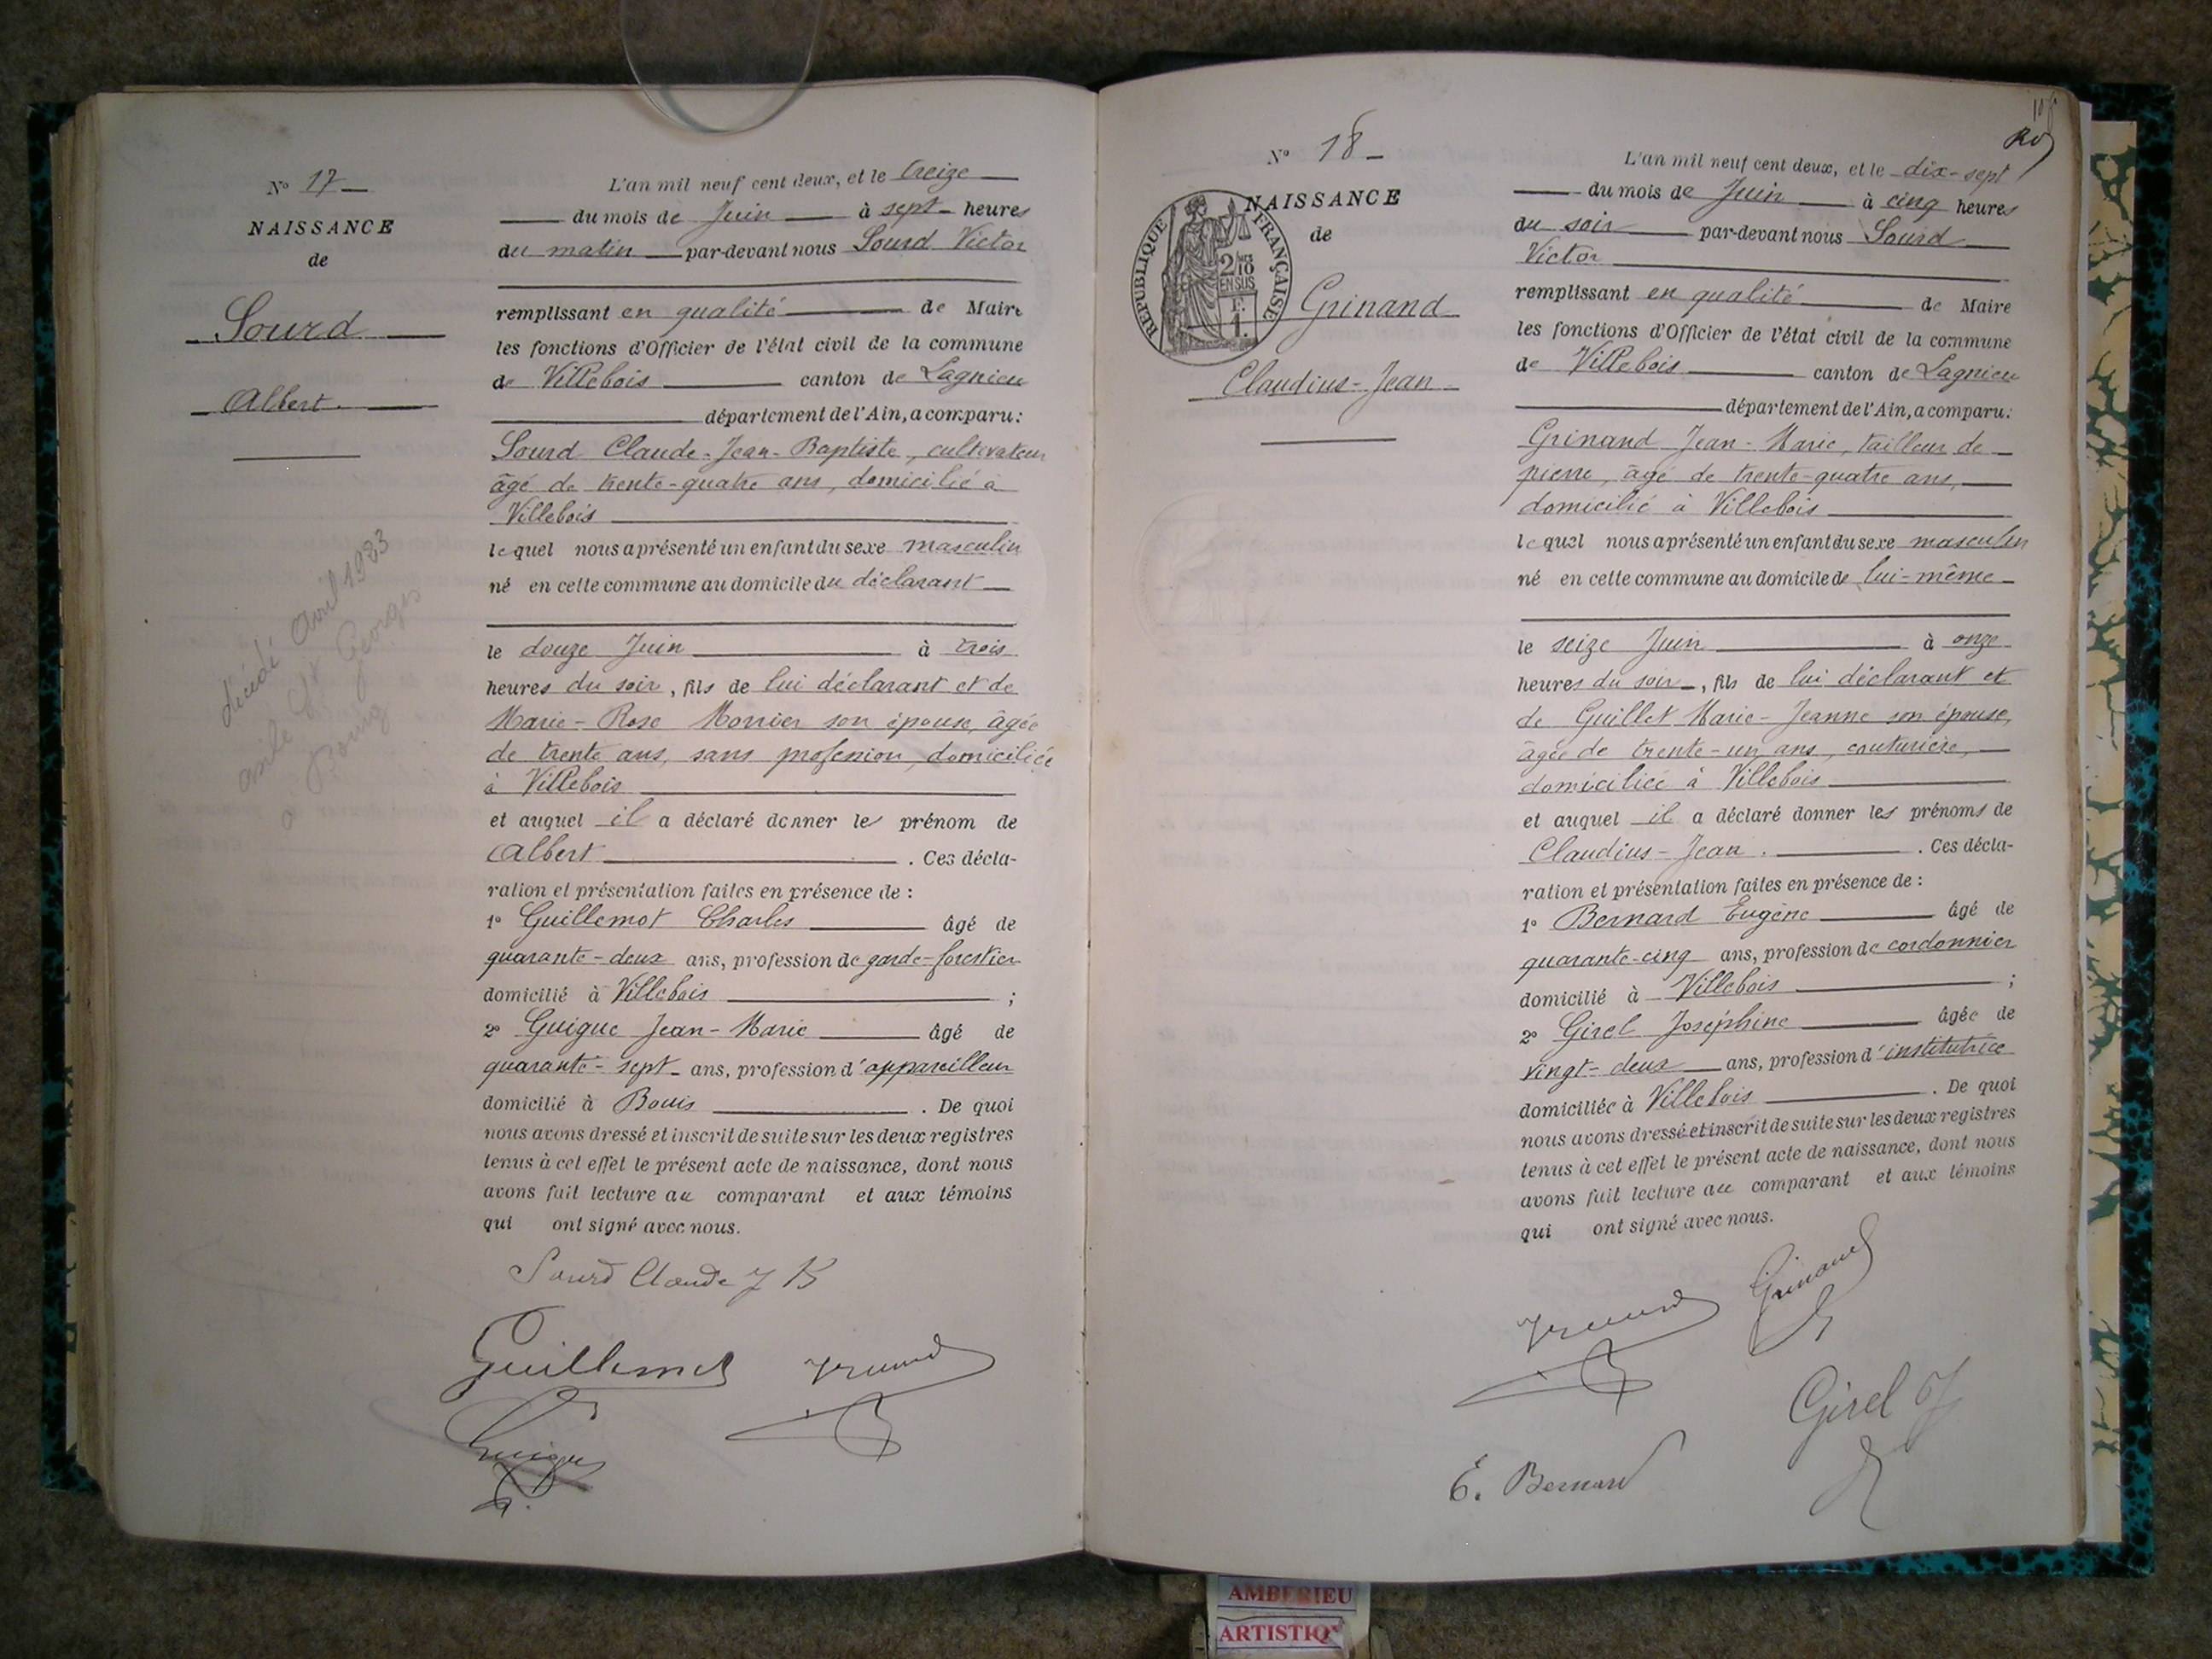 N° 17
NAISSANCE
de
Sourd
Albert.
décédé Avril 1983
asile St Georges
a Bourg
L'an mil neuf cent deux, et le treize
du mois de Juin à sept heures
du matin par-devant nous Sourd Victor
remplissant en qualité de Maire
les fonctions d'Officier de l'état civil de la commune
de Villebois canton de Lagnieu
département de l'Ain, a comparu:
Sourd Claude-Jean-Baptiste, cultivateur
âgé de trente-quatre ans, domicilié à
Villebois
lequel nous a présenté un enfant du sexe masculin
né en cette commune au domicile du déclarant
le douze Juin à trois
heures du soir, fils de lui déclarant et de
Marie-Rose Monier son épouse, âgée
de trente ans, sans profession, domiciliée
à Villebois
et auquel il a déclaré donner le prénom de
Albert . Ces décla-
ration et présentation faites en présence de :
1° Guillemot Charles âgé de
quarante-deux ans, profession de garde-forestier
domicilié à Villebois ;
2° Guigue Jean-Marie âgé de
quarante-sept ans, profession d'appareilleur
domicilié à Bouis . De quoi
nous avons dressé et inscrit de suite sur les deux registres
tenus à cet effet le présent acte de naissance, dont nous
avons fait lecture au comparant et aux témoins
qui ont signé avec nous.
Sourd Claude J B
Guillemot
Guigue
N° 18
NAISSANCE
de
REPUBLIQUE FRANÇAISE
2/10
EN SUS
F.
1.
Grinand
Claudius-Jean
L'an mil neuf cent deux, et le dix-sept
du mois de Juin à cinq heures
du soir par-devant nous Sourd
Victor
remplissant en qualité de Maire
les fonctions d'Officier de l'état civil de la commune
de Villebois canton de Lagnieu
département de l'Ain, a comparu:
Grinand Jean-Marie, tailleur de
pierre, âgé de trente-quatre ans,
domicilié à Villebois
lequel nous a présenté un enfant du sexe masculin
né en cette commune au domicile de lui-même
le seize Juin à onze
heures du soir, fils de lui déclarant et
de Guillet Marie-Jeanne son épouse,
âgée de trente-un ans, couturière,
domiciliée à Villebois
et auquel il a déclaré donner les prénoms de
Claudius-Jean. . Ces décla-
ration et présentation faites en présence de :
1° Bernard Eugène âgé de
quarante-cinq ans, profession de cordonnier
domicilié à Villebois ;
2° Girel Joséphine âgée de
vingt-deux ans, profession d'institutrice
domiciliée à Villebois . De quoi
nous avons dressé et inscrit de suite sur les deux registres
tenus à cet effet le présent acte de naissance, dont nous
avons fait lecture au comparant et aux témoins
qui ont signé avec nous.
Grinand
Girel J
E. Bernard
AMBERIEU
ARTISTIQ